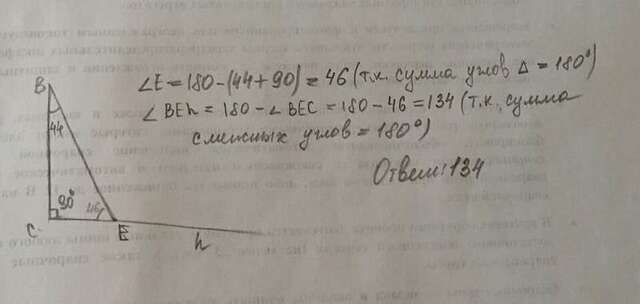 ∠E = 180 - (44 + 90) = 46 (т.к. сумма углов Δ = 180°)
∠ BEh = 180 - ∠ BEC = 180 - 46 = 134 (т.к. сумма
смежных углов = 180°)
Ответ: 134
B
44
90°
46
C
E
h